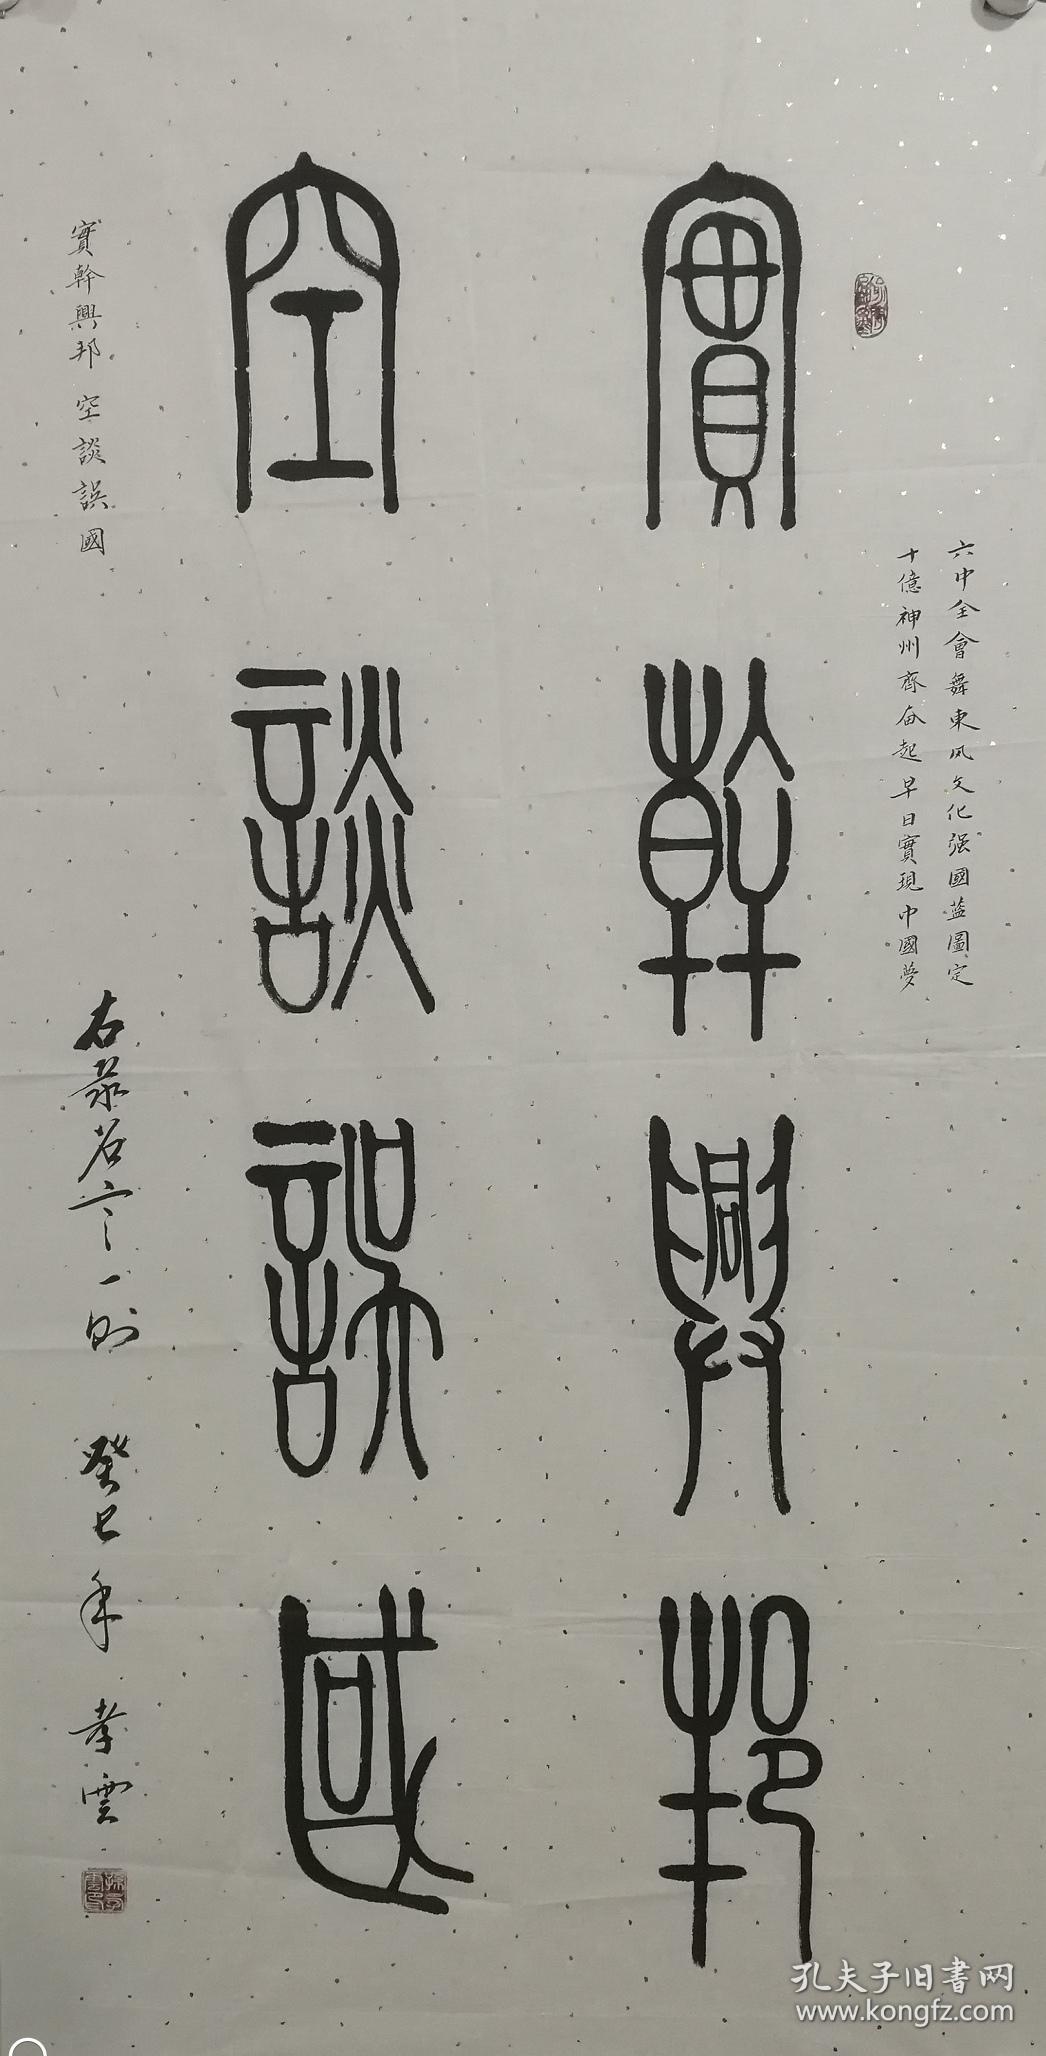 六中全會舞東風文化强國藍圖定
十億神州齊奋起早日實現中國夢
實幹興邦
空談誤國
實幹興邦 空談誤國
右录名言一則 癸巳年 孝雲
孔夫子旧書网
www.kongfz.com